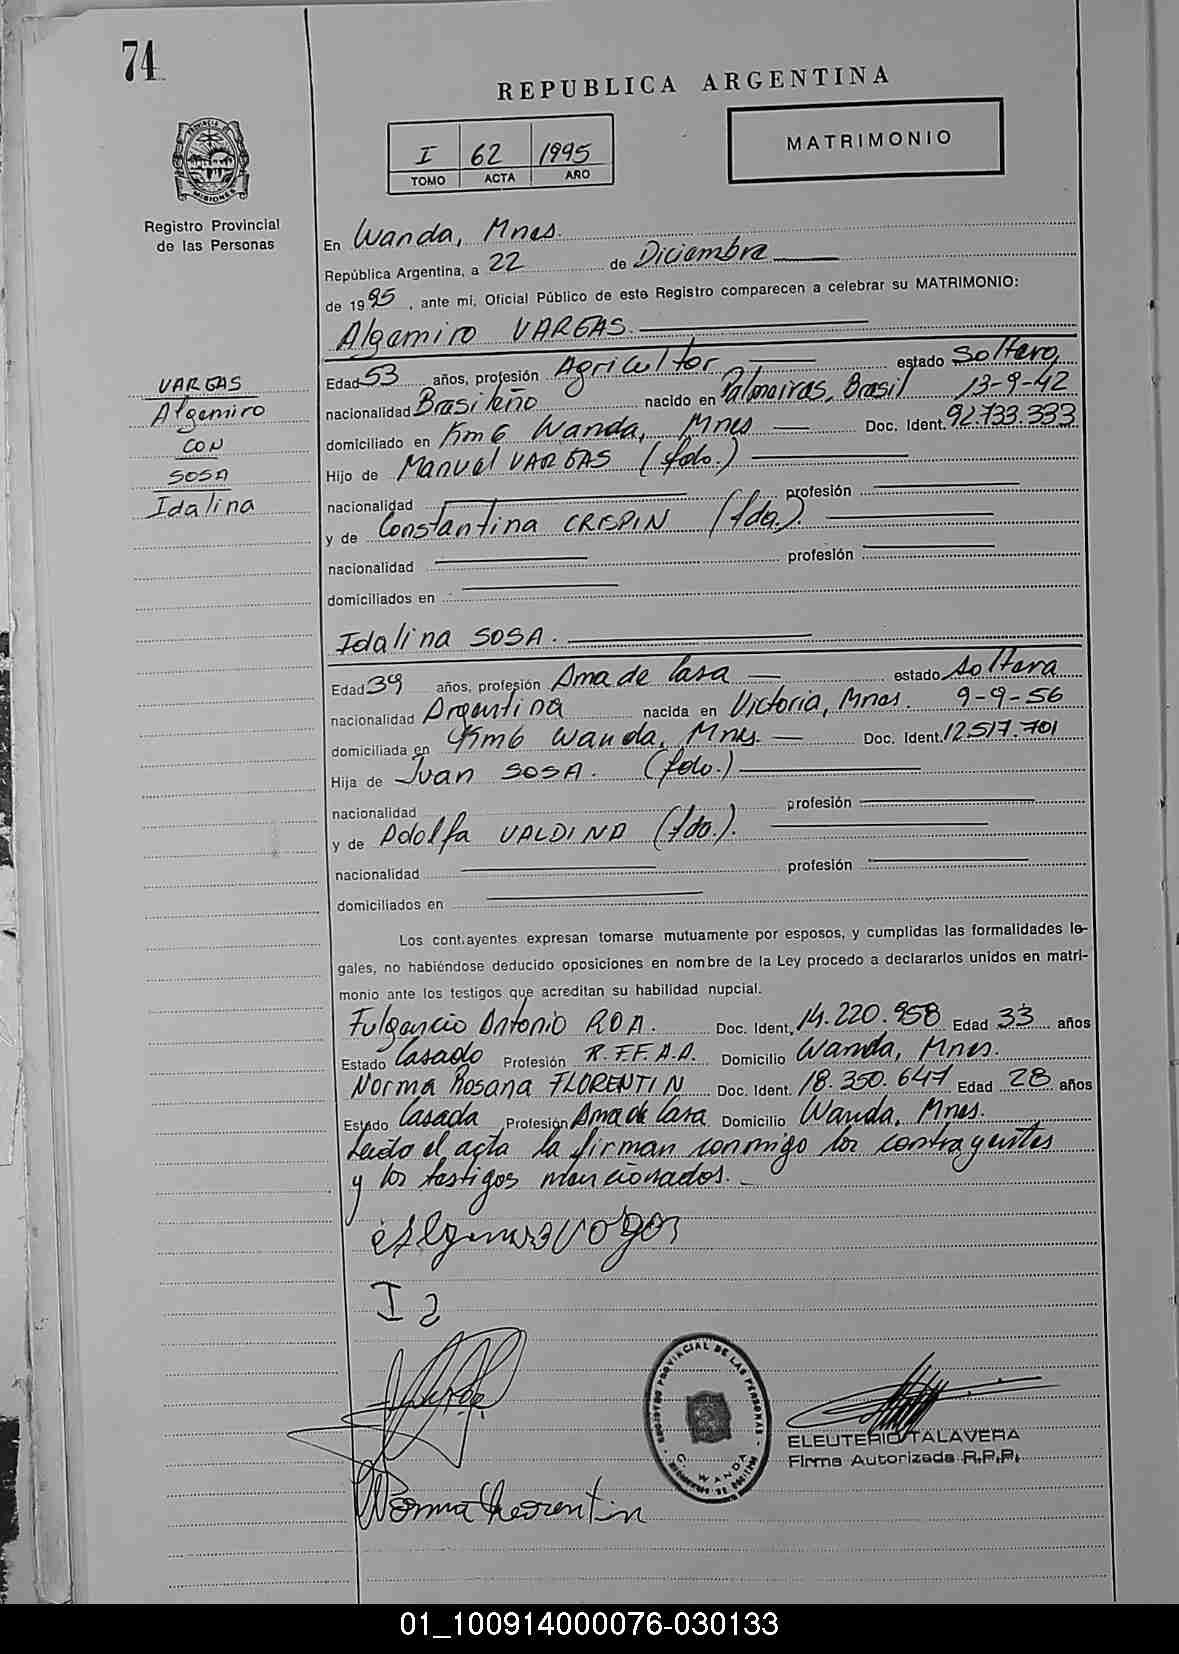 74
REPUBLICA ARGENTINA
I 62 1995
TOMO ACTA AÑO
MATRIMONIO
PROVINCIA DE MISIONES
Registro Provincial
de las Personas
En Wanda, Mnes.
República Argentina, a 22 de Diciembre
de 1995, ante mi, Oficial Público de este Registro comparecen a celebrar su MATRIMONIO:
Algemiro VARGAS.
VARGAS
Algemiro
CON
SOSA
Idalina
Edad 53 años, profesión Agricultor estado Soltero
nacionalidad Brasileño nacido en Palmeiras, Brasil 13-9-42
domiciliado en Km6 Wanda, Mnes Doc. Ident. 92.733.333
Hijo de Manuel VARGAS (fdo.)
nacionalidad profesión
y de Constantina CRESPIN (fda.).
nacionalidad profesión
domiciliados en
Idalina SOSA.
Edad 39 años, profesión Ama de Casa estado Soltera
nacionalidad Argentina nacida en Victoria, Mnes. 9-9-56
domiciliada en Km6 Wanda, Mnes. Doc. Ident. 12.517.701
Hija de Juan SOSA. (fdo.)
nacionalidad profesión
y de Adolfa VALDINA (fda.).
nacionalidad profesión
domiciliados en
Los contrayentes expresan tomarse mutuamente por esposos, y cumplidas las formalidades le-
gales, no habiéndose deducido oposiciones en nombre de la Ley procedo a declararlos unidos en matri-
monio ante los testigos que acreditan su habilidad nupcial.
Fulgencio Antonio ROA. Doc. Ident. 14.220.958 Edad 33 años
Estado Casado Profesión R.F.F.A.A. Domicilio Wanda, Mnes.
Norma Rosana FLORENTIN Doc. Ident. 18.350.647 Edad 28 años
Estado Casada Profesión Ama de Casa Domicilio Wanda, Mnes.
Leído el acta la firman conmigo los contrayentes
y los testigos mencionados.
I S
REGISTRO PROVINCIAL DE LAS PERSONAS
WANDA
ELEUTERIO TALAVERA
Firma Autorizada R.P.P.
Norma Florentin
01_100914000076-030133